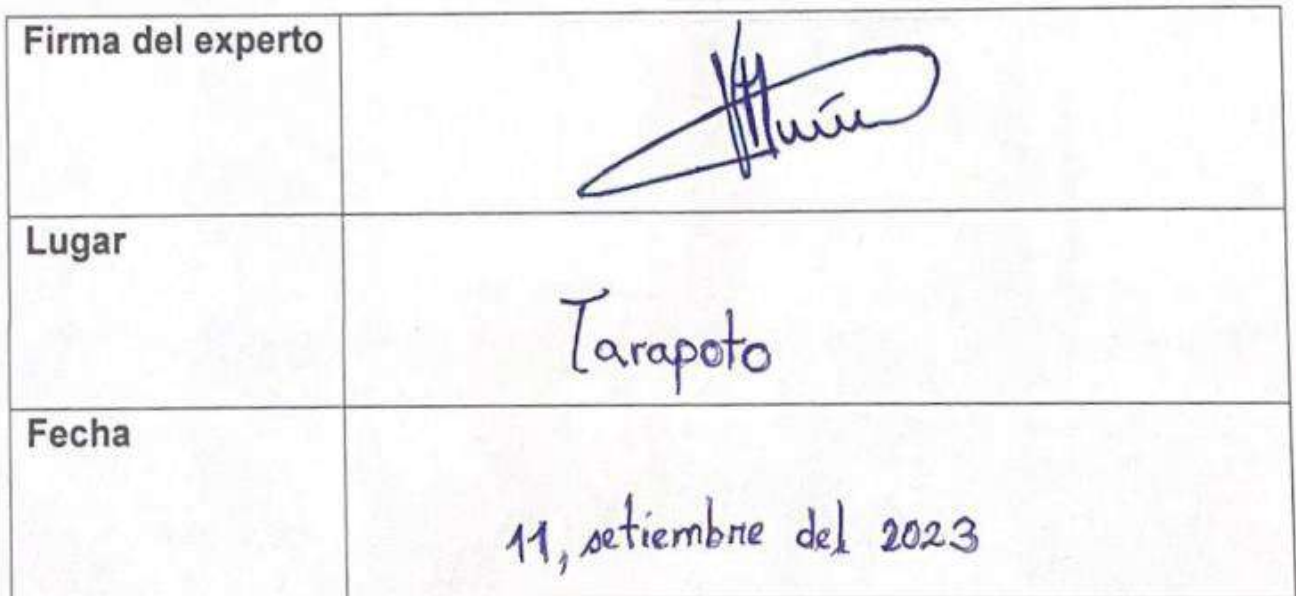 Firma del experto
Lugar
Tarapoto
Fecha
11, setiembre del 2023